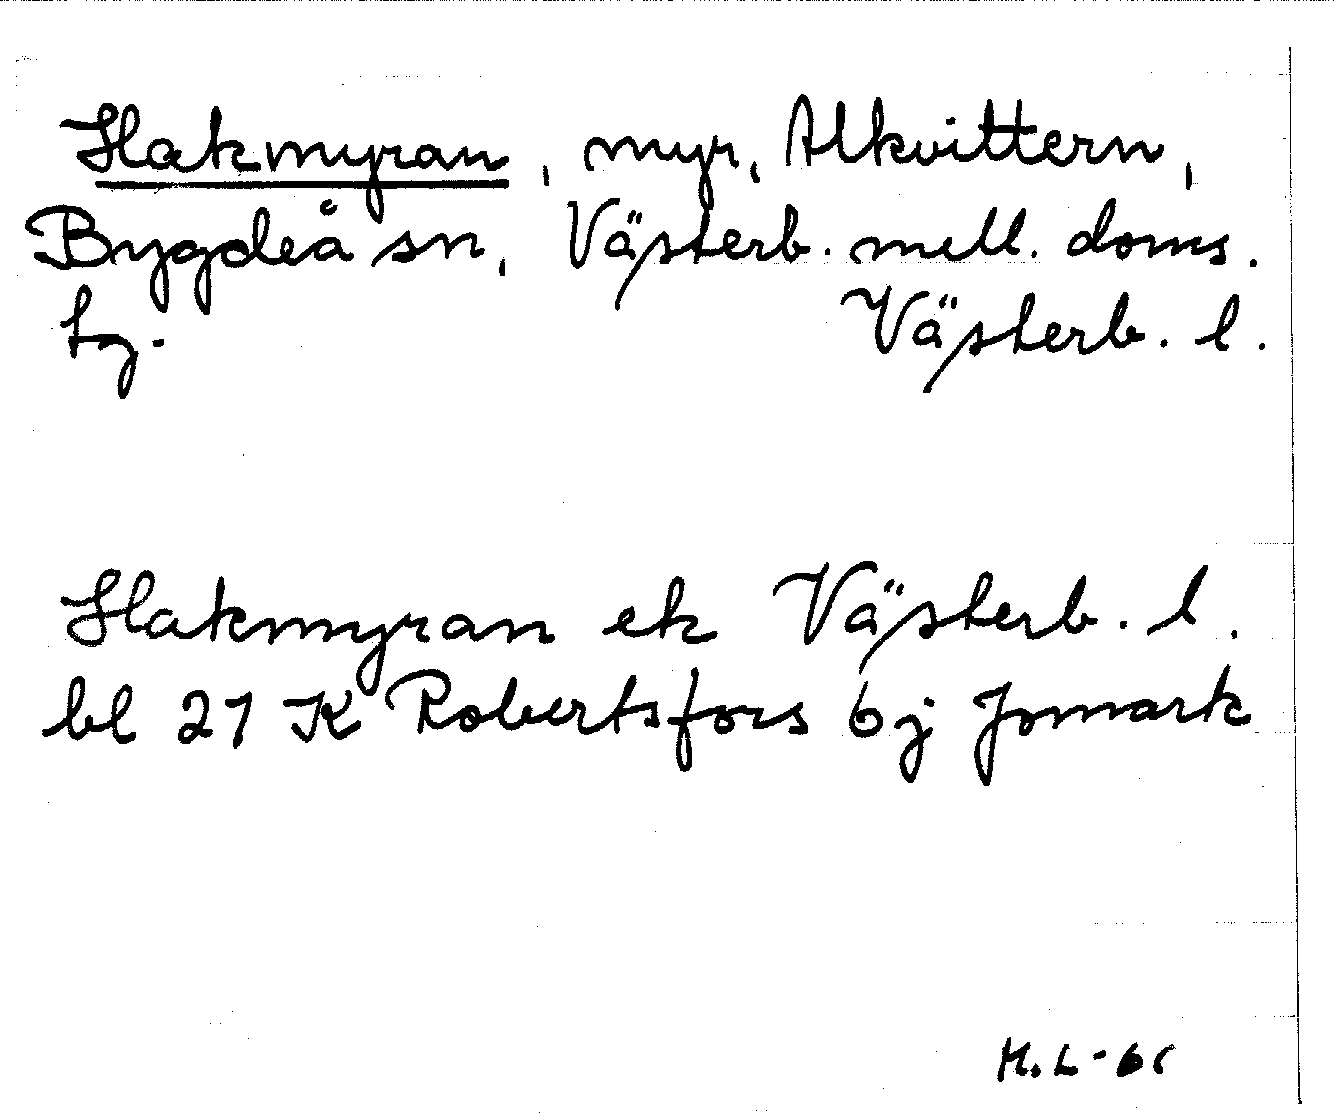 Hakmyran, myr, Alkvittern,
Bygdeå sn, Västerb. mell. doms.
tg. Västerb. l.
Hakmyran ek Västerb. l.
bl 27 K Robertsfors 6j Jomark
H.L-65